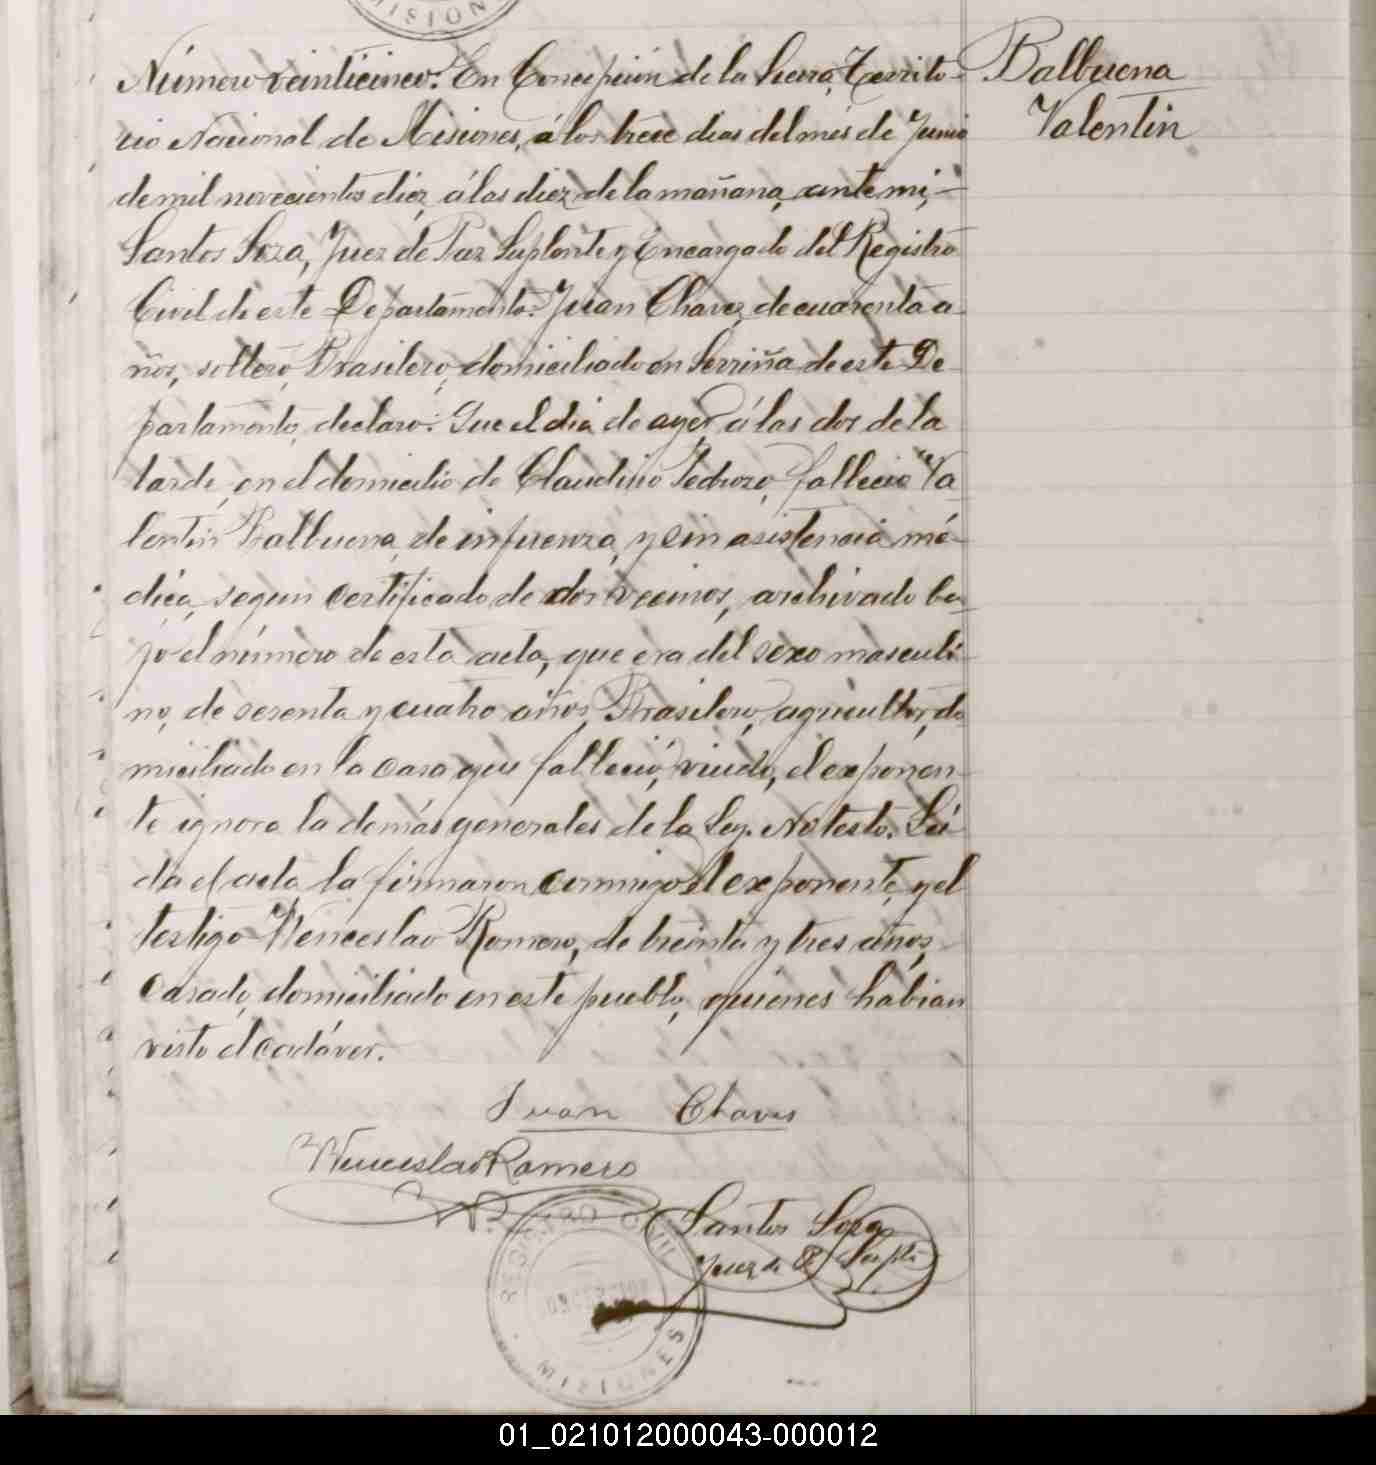 MISION
Número veinticinco. En Concepcion de la Sierra, Territo-
rio Nacional de Misiones, á los trece dias del mes de Junio
de mil novecientos diez, á las diez de la mañana, ante mi,
Santos Soza, Juez de Paz Suplente y Encargado del Registro
Civil de este Departamento. Juan Chavez, de cuarenta a-
ños, soltero, Brasilero, domiciliado en Serriña de este De-
partamento, declaro: Que el dia de ayer á las dos de la
tarde, en el domicilio de Claudino Pedrozo, fallecio Va
lentin Balbuena, de infuenza, y sin asistencia mé-
dica, segun certificado de dos vecinos, archivado ba
jo el número de esta acta, que era del sexo masculi
no, de sesenta y cuatro años, Brasilero, agricultor, do
miciliado en la casa que falleció, viudo, el exponen-
te ignora la demás generales de la Ley. No testó. Lei
da el acta la firmaron conmigo el exponente, y el
testigo Wenceslao Romero, de treinta y tres años,
casado, domiciliado en este pueblo, quienes habian
visto el cadáver.
Balbuena
Valentin
Juan Chaves
Wenceslao Romero
Santos Soza
Juez de P. Suplte
REGISTRO CIVIL
MISIONES
01_021012000043-000012